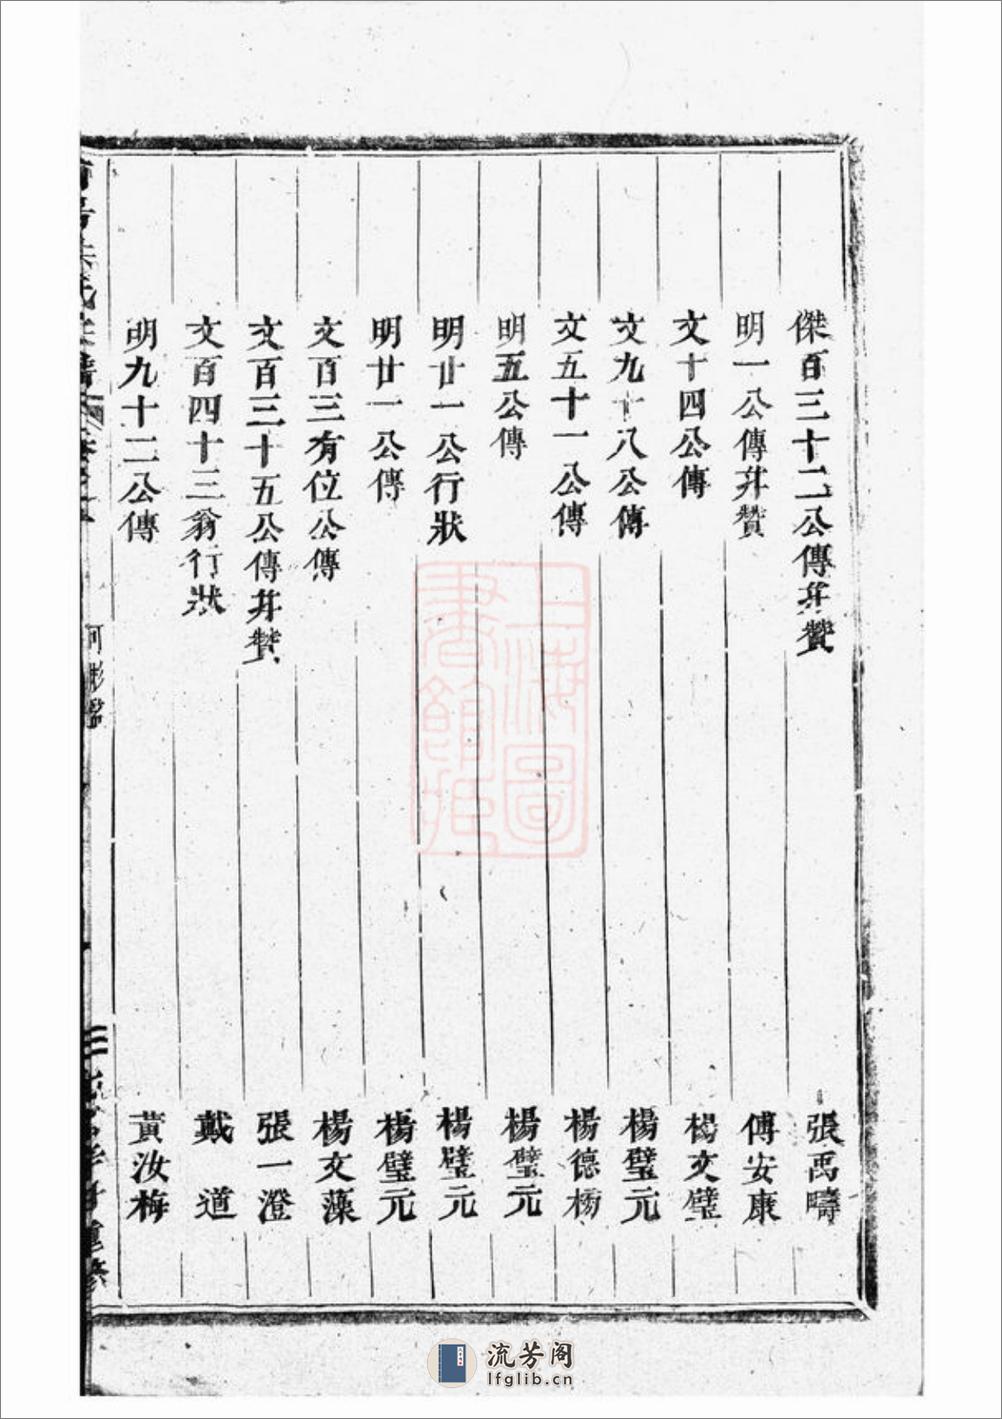 傑百三十二公傳并贊　張禹疇
明一公傳并贊　傅安康
文十四公傳　楊文璧
文九十八公傳　楊璧元
文五十一公傳　楊德楊
明五公傳　楊璧元
明廿一公行狀　楊璧元
明廿一公傳　楊璧元
文百三有位公傳　楊文藻
文百三十五公傳并贊　張一澄
文百四十三翁行狀　戴道
明九十二公傳　黃汝梅
三
重修
上海圖書館藏
流芳阁
lfglib.cn